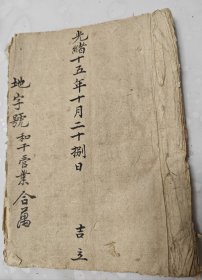 光緒十五年十月二十捌日
吉立
地字號和千营業合萬